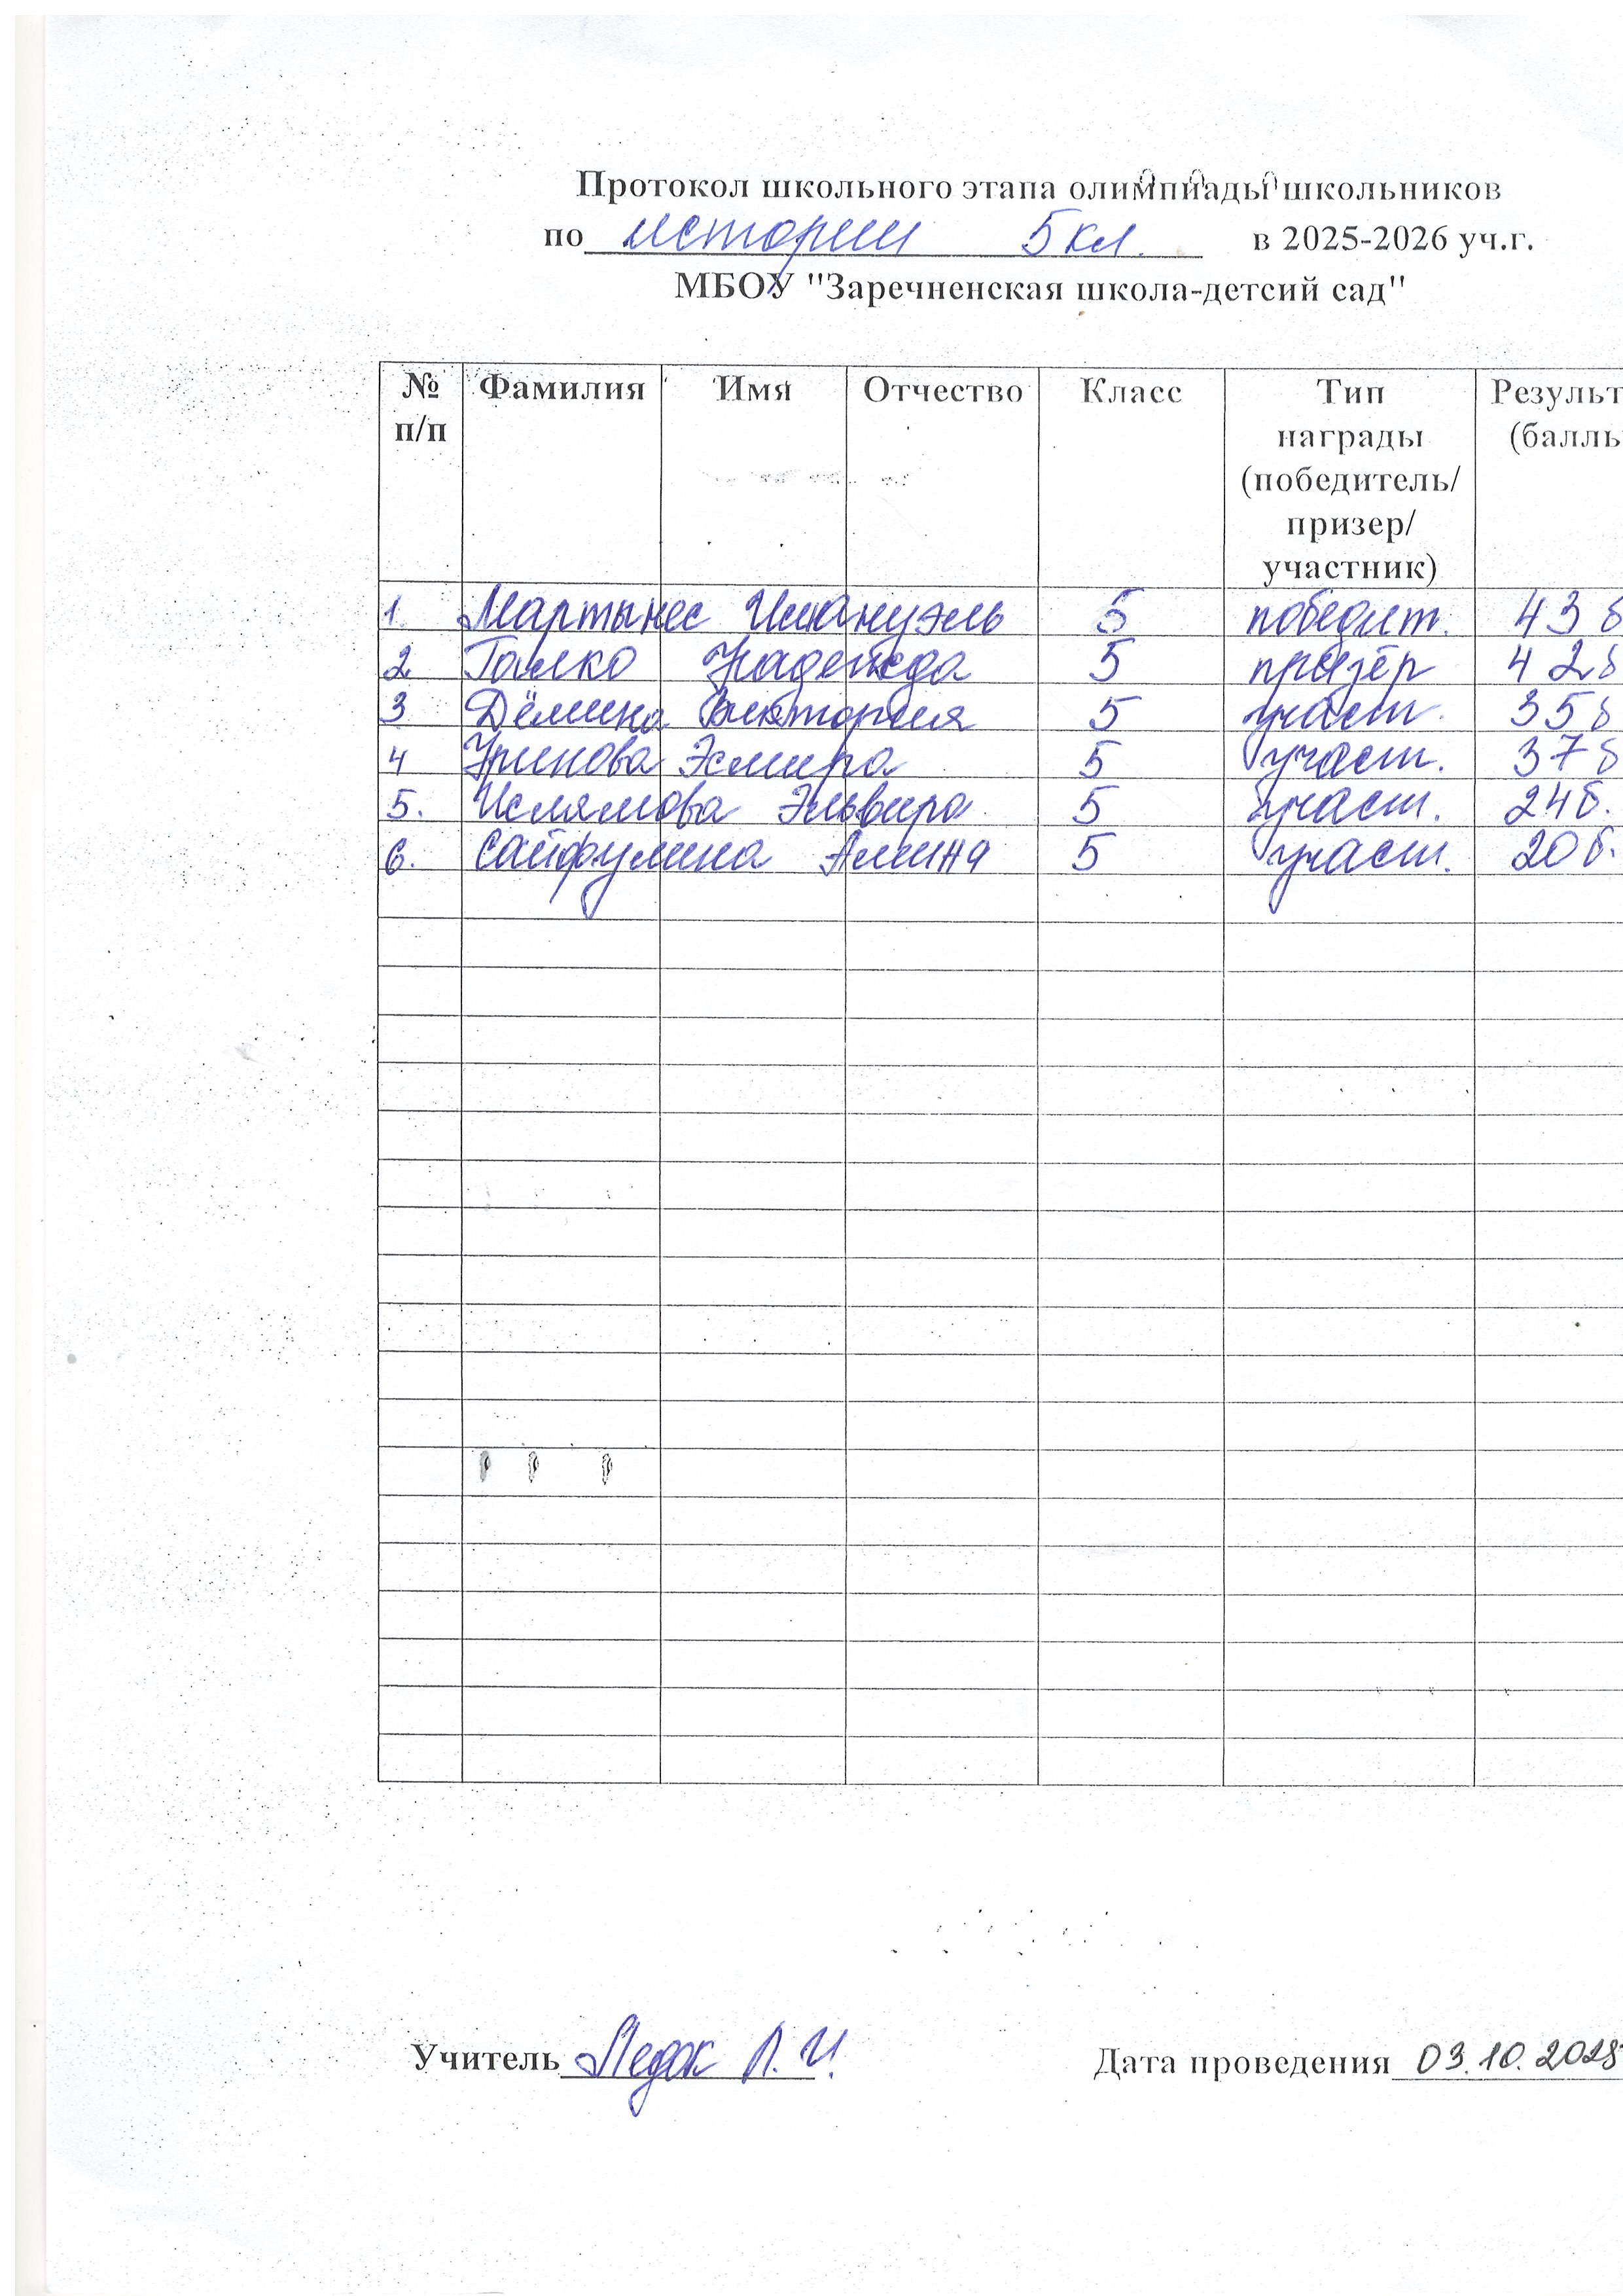 Протокол школьного этапа олимпиады школьников
по истории 5 кл. в 2025-2026 уч.г.
МБОУ "Заречненская школа-детсий сад"
№ п/п Фамилия Имя Отчество Класс Тип награды (победитель/ призер/ участник) Результ (баллы
1. Мартынес Имануэль 5 победит. 43 б
2 Галко Надежда 5 призёр 42 б
3 Дёмина Виктория 5 участ. 35 б
4 Уринова Эсмира 5 участ. 37 б
5. Ислямова Эльвира 5 участ. 24 б.
6. Сайфулина Алина 5 участ. 20 б.
Учитель Ледок Л. И. Дата проведения 03.10.2025